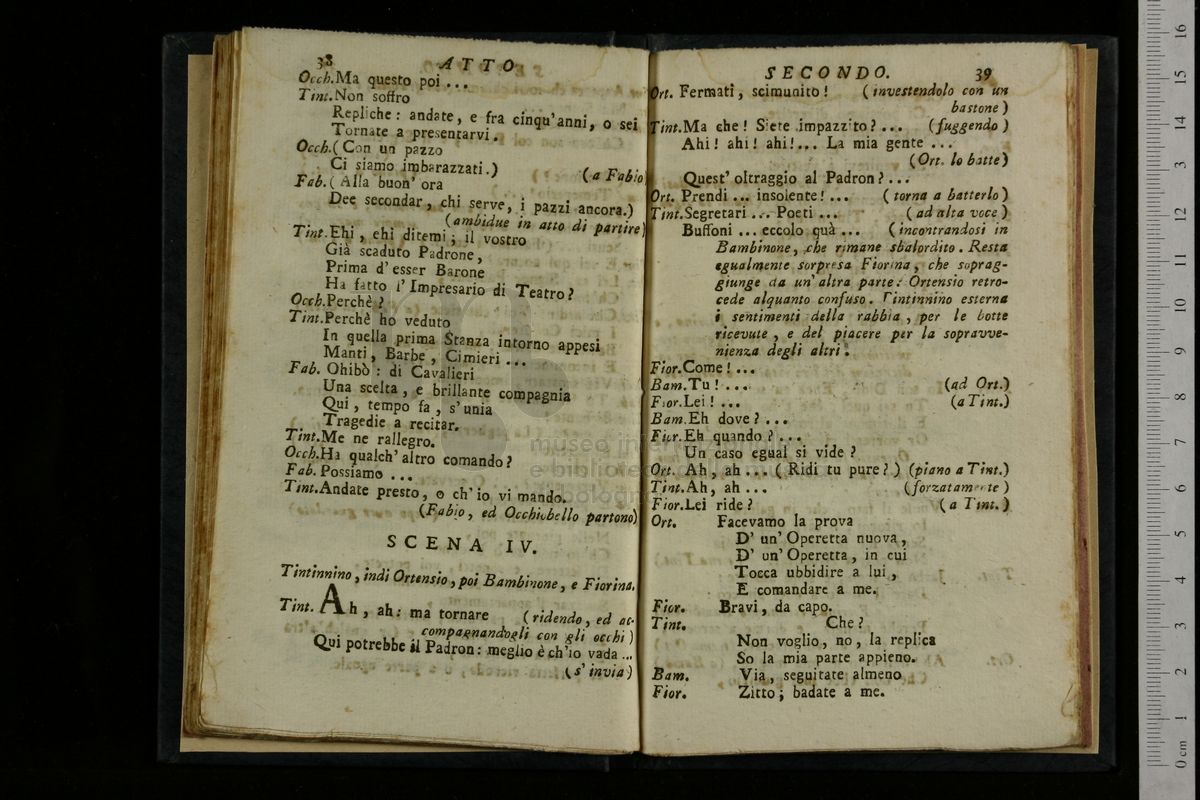 38 ATTO
Occh.Ma questo poi ...
Tint.Non soffro
Repliche: andate, e fra cinqu'anni, o sei
Tornate a presentarvi.
Occh.(Con un pazzo
Ci siamo imbarazzati.) (a Fabio
Fab.(Alla buon' ora
Dee secondar, chi serve, i pazzi ancora.)
(ambidue in atto di partire)
Tint.Ehi, ehi ditemi; il vostro
Già scaduto Padrone,
Prima d'esser Barone
Ha fatto l'Impresario di Teatro?
Occh.Perchè?
Tint.Perchè ho veduto
In quella prima Stanza intorno appesi
Manti, Barbe, Cimieri ...
Fab. Ohibò: di Cavalieri
Una scelta, e brillante compagnia
Qui, tempo fa, s'unia
Tragedie a recitar.
Tint.Me ne rallegro.
Occh.Ha qualch'altro comando?
Fab. Possiamo ...
Tint.Andate presto, o ch'io vi mando.
(Fabio, ed Occhiobello partono)
SCENA IV.
Tintinnino, indi Ortensio, poi Bambinone, e Fiorina.
Tint. Ah, ah: ma tornare (ridendo, ed ac-
compagnandogli con gli occhi)
Qui potrebbe il Padron: meglio è ch'io vada ...
(s'invia)
SECONDO. 39
Ort. Fermati, scimunito! (investendolo con un
bastone)
Tint.Ma che! Siete impazzito? ... (fuggendo)
Ahi! ahi! ahi!... La mia gente ...
(Ort. lo batte)
Quest' oltraggio al Padron? ...
Ort. Prendi ... insolente! ... (torna a batterlo)
Tint.Segretari ... Poeti ... (ad alta voce)
Buffoni ... eccolo quà ... (incontrandosi in
Bambinone, che rimane sbalordito. Resta
egualmente sorpresa Fiorina, che soprag-
giunge da un'altra parte: Ortensio retro-
cede alquanto confuso. Tintinnino esterna
i sentimenti della rabbia, per le botte
ricevute, e del piacere per la sopravve-
nienza degli altri.
Fior.Come! ...
Bam.Tu! ... (ad Ort.)
Fior.Lei! ... (a Tint.)
Bam.Eh dove? ...
Fior.Eh quando? ...
Un caso egual si vide?
Ort. Ah, ah ... (Ridi tu pure?) (piano a Tint.)
Tint.Ah, ah ... (forzatamente)
Fior.Lei ride? (a Tint.)
Ort. Facevamo la prova
D' un' Operetta nuova,
D' un' Operetta, in cui
Tocca ubbidire a lui,
E comandare a me.
Fior. Bravi, da capo.
Tint. Che?
Non voglio, no, la replica
So la mia parte appieno.
Bam. Via, seguitate almeno
Fior. Zitto; badate a me.
museo internazionale
e biblioteca della musica
di bologna
0 cm 1 2 3 4 5 6 7 8 9 10 11 12 13 14 15 16